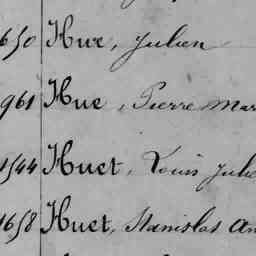 650 Hue, Julien
961 Hue, Pierre Mar
1544 Huet, Louis Julie
1658 Huet, Stanislas An